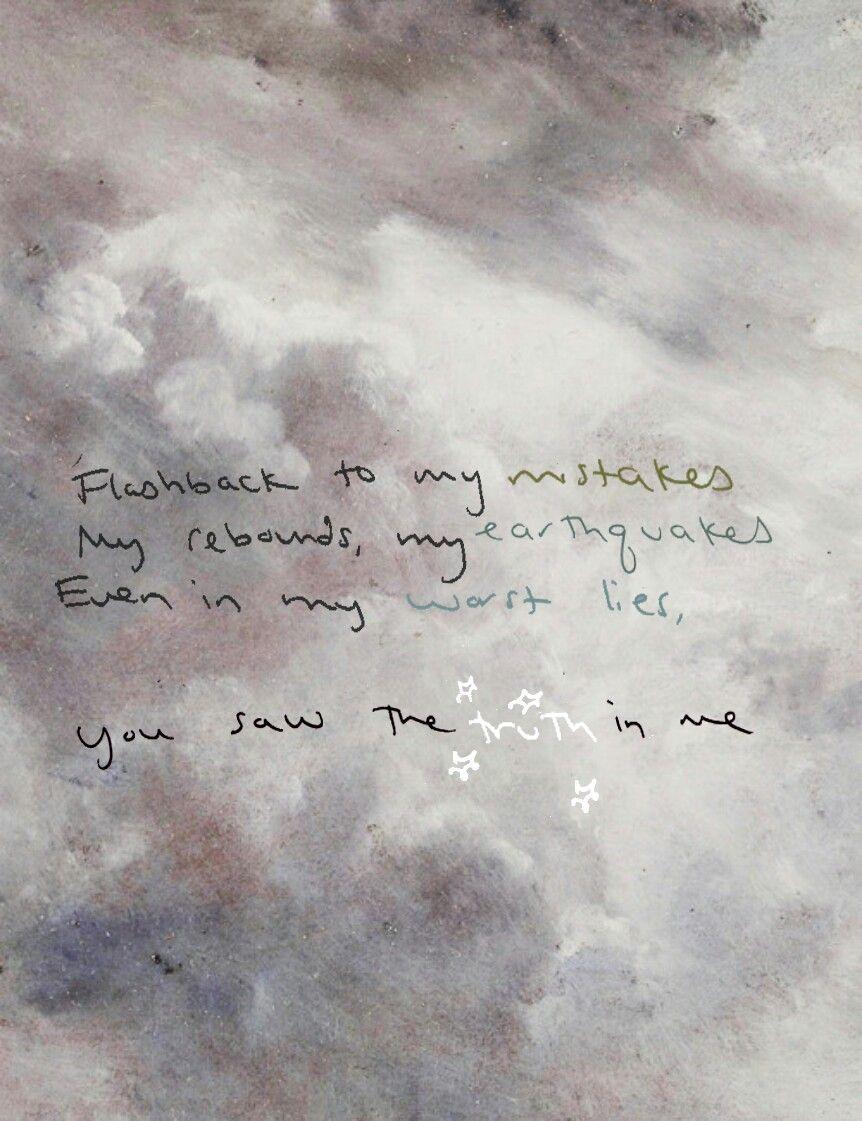 Flashback to my mistakes
My rebounds, my earthquakes
Even in my worst lies,
you saw the truth in me